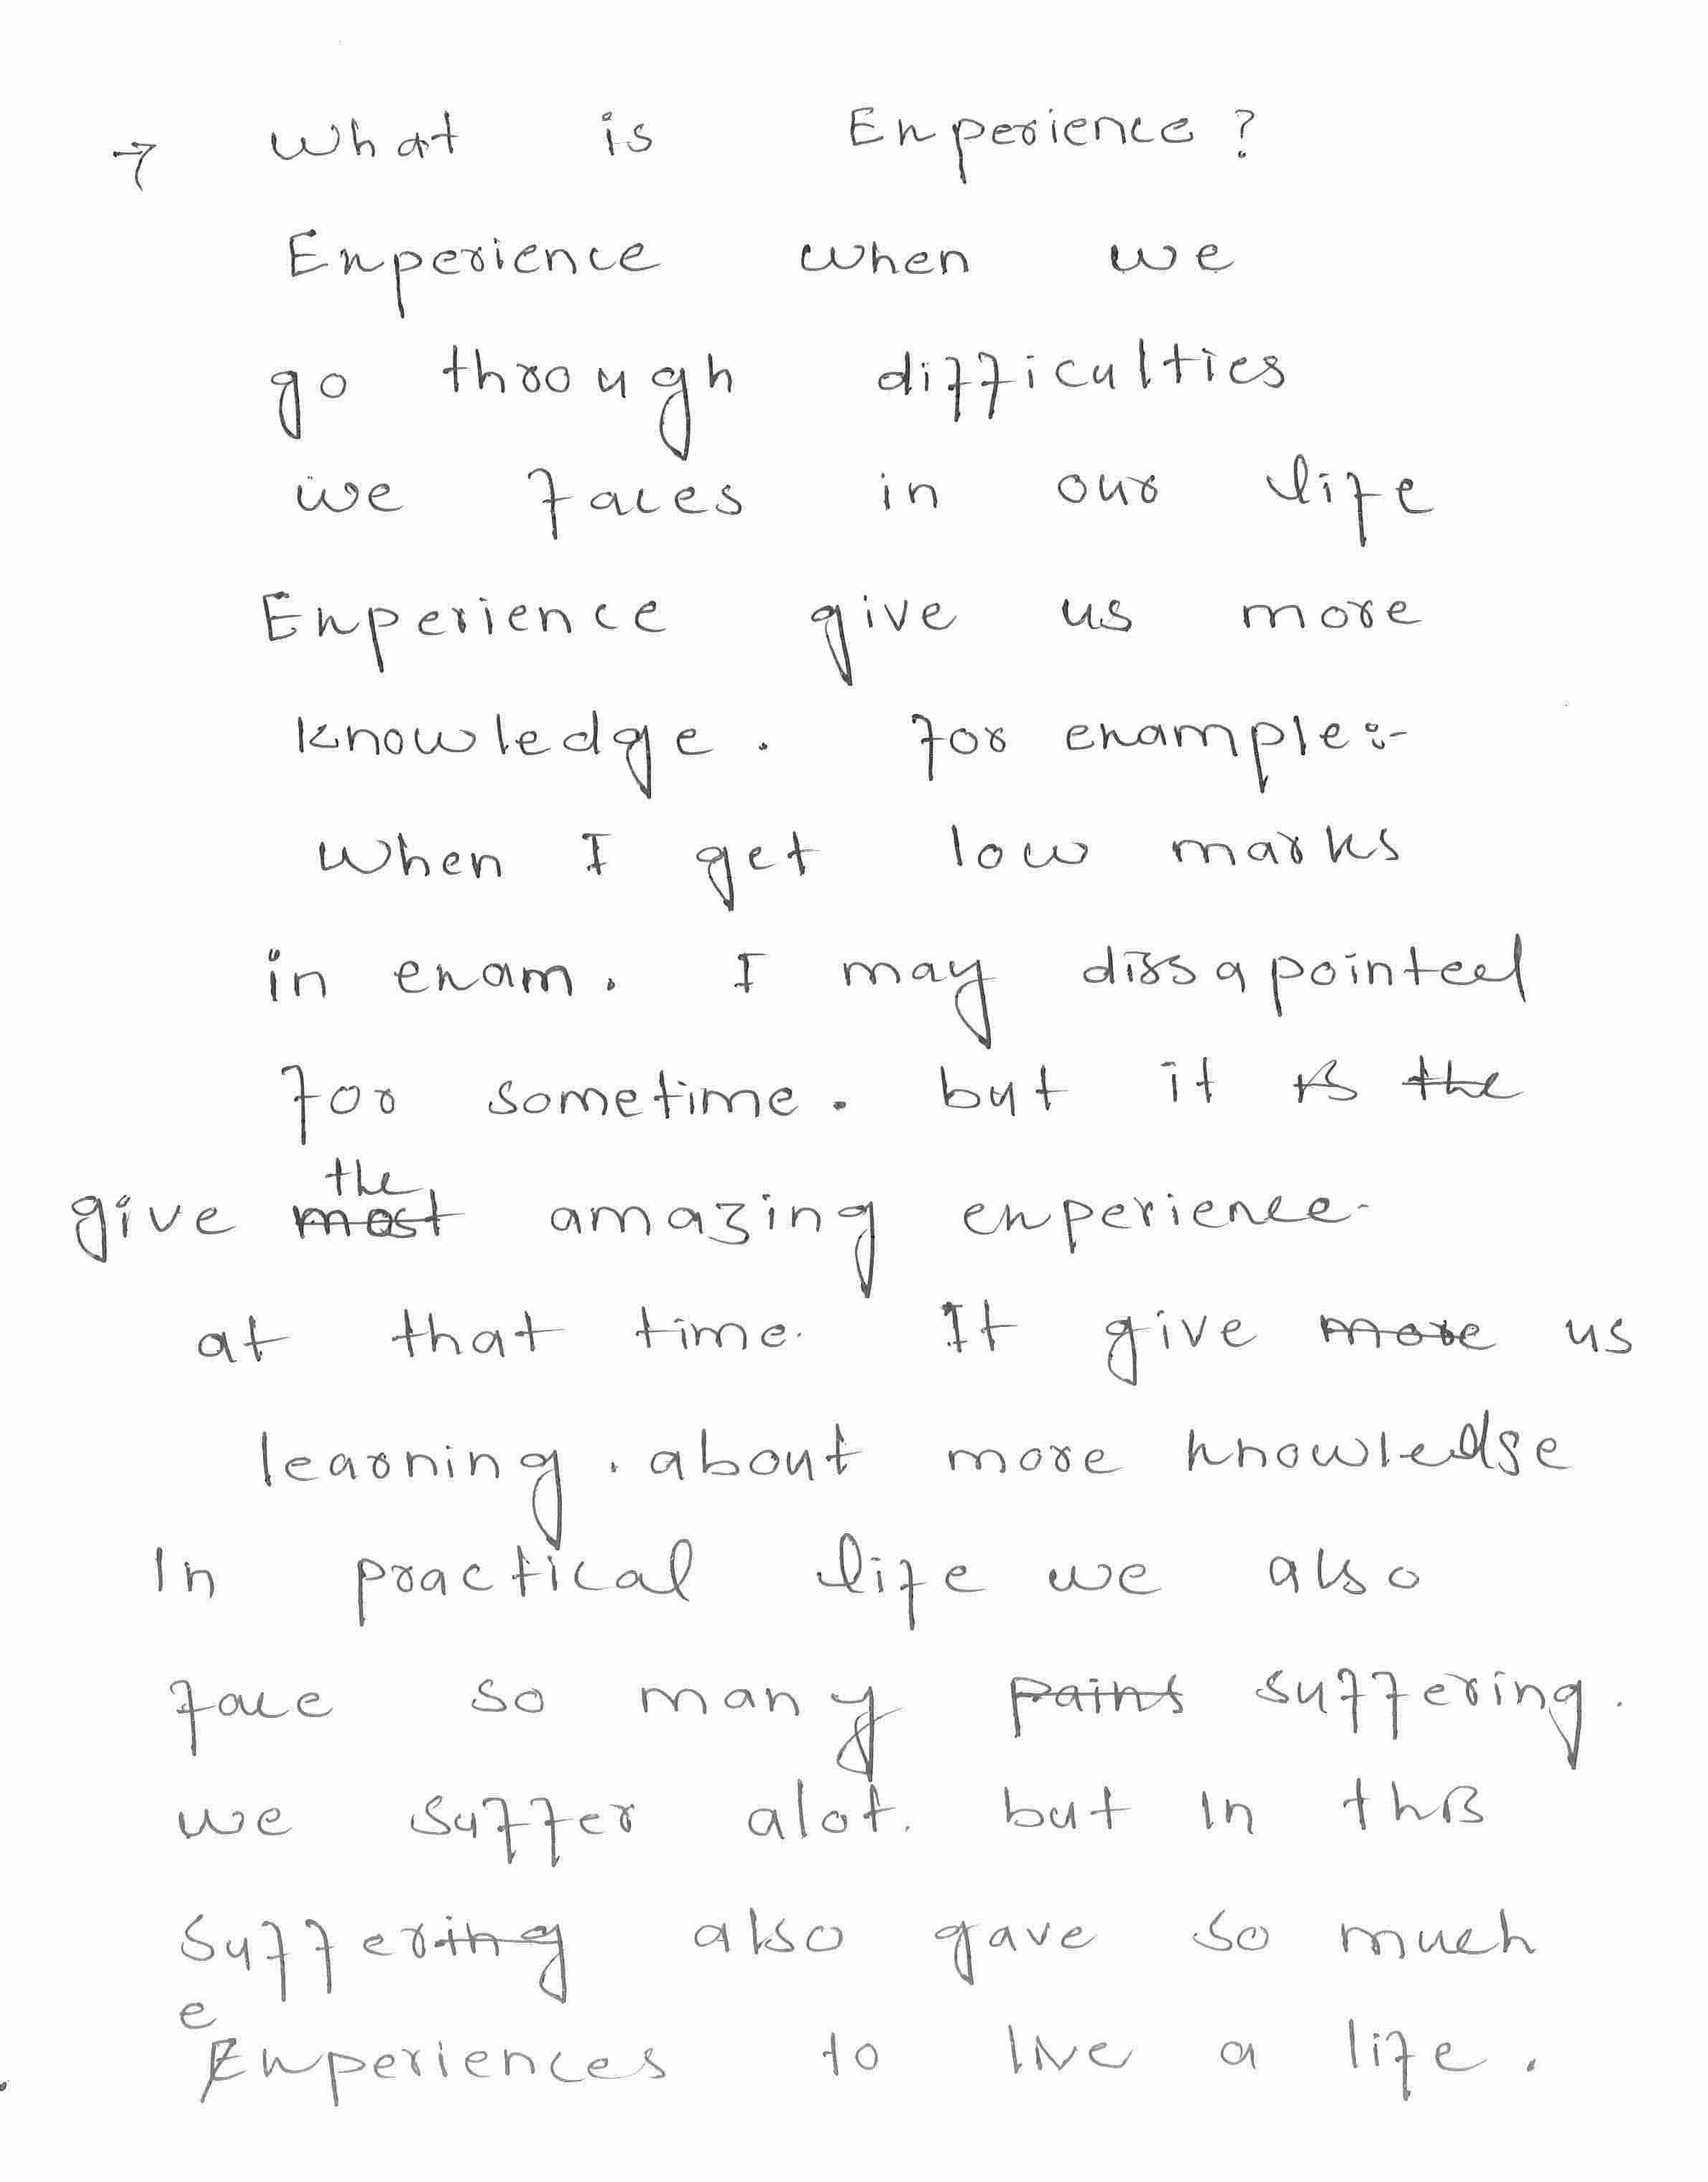 → What is Experience?
Experience when we
go through difficulties
we faces in our life
Experience give us more
knowledge. for example:-
When I get low marks
in exam. I may dissapointed
for sometime. but it ~~is~~ ~~the~~
give ~~most~~ the amazing experience.
at that time. It give ~~more~~ us
learning. about more knowledge
In practical life we also
face so many ~~pains~~ suffering.
we suffer alot. but in this
suffer~~ing~~ also gave so much
experiences to live a life.